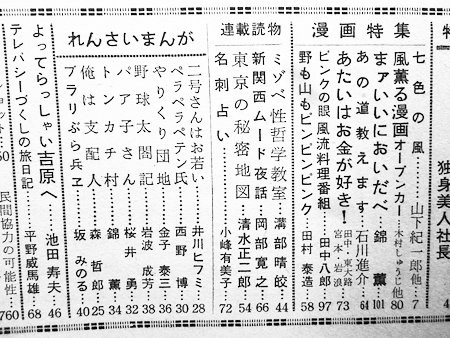 独身美人社長
漫画特集
七色の風 山下紀一郎他 7
風薫る漫画オープンカー 木村しゅうじ他 80
まァいいにおいだべ 錦薫 101
あの道教えます 石川進介 64
あたいはお金が好き! 田中・東大路 宮本・岩浪 73
ピンクの眼風流料理番組 田中八郎 97
野も山もピンピンピンク 田村泰造 58
連載読物
ミゾベ性哲学教室 溝部晴皎 44
新関西ムード夜話 岡部寛之 66
東京の秘密地図 清水正二郎 54
名刺占い 小峰有美子 72
れんさいまんが
二号さんはお若い 井川ヒフミ 28
ペラペラペテン氏 西野博 30
やりくり団地 金子泰三 36
野球太閤記 岩波成芳 38
パア子さん 桜井勇 32
トンカチ村 錦薫 34
俺は支配人 森哲郎 25
ブラリぶら兵ヱ 坂みのる 40
よってらっしゃい吉原へ 池田寿夫 46
テレパシーづくしの旅日記 平野威馬雄 68
民間協力の可能性
760